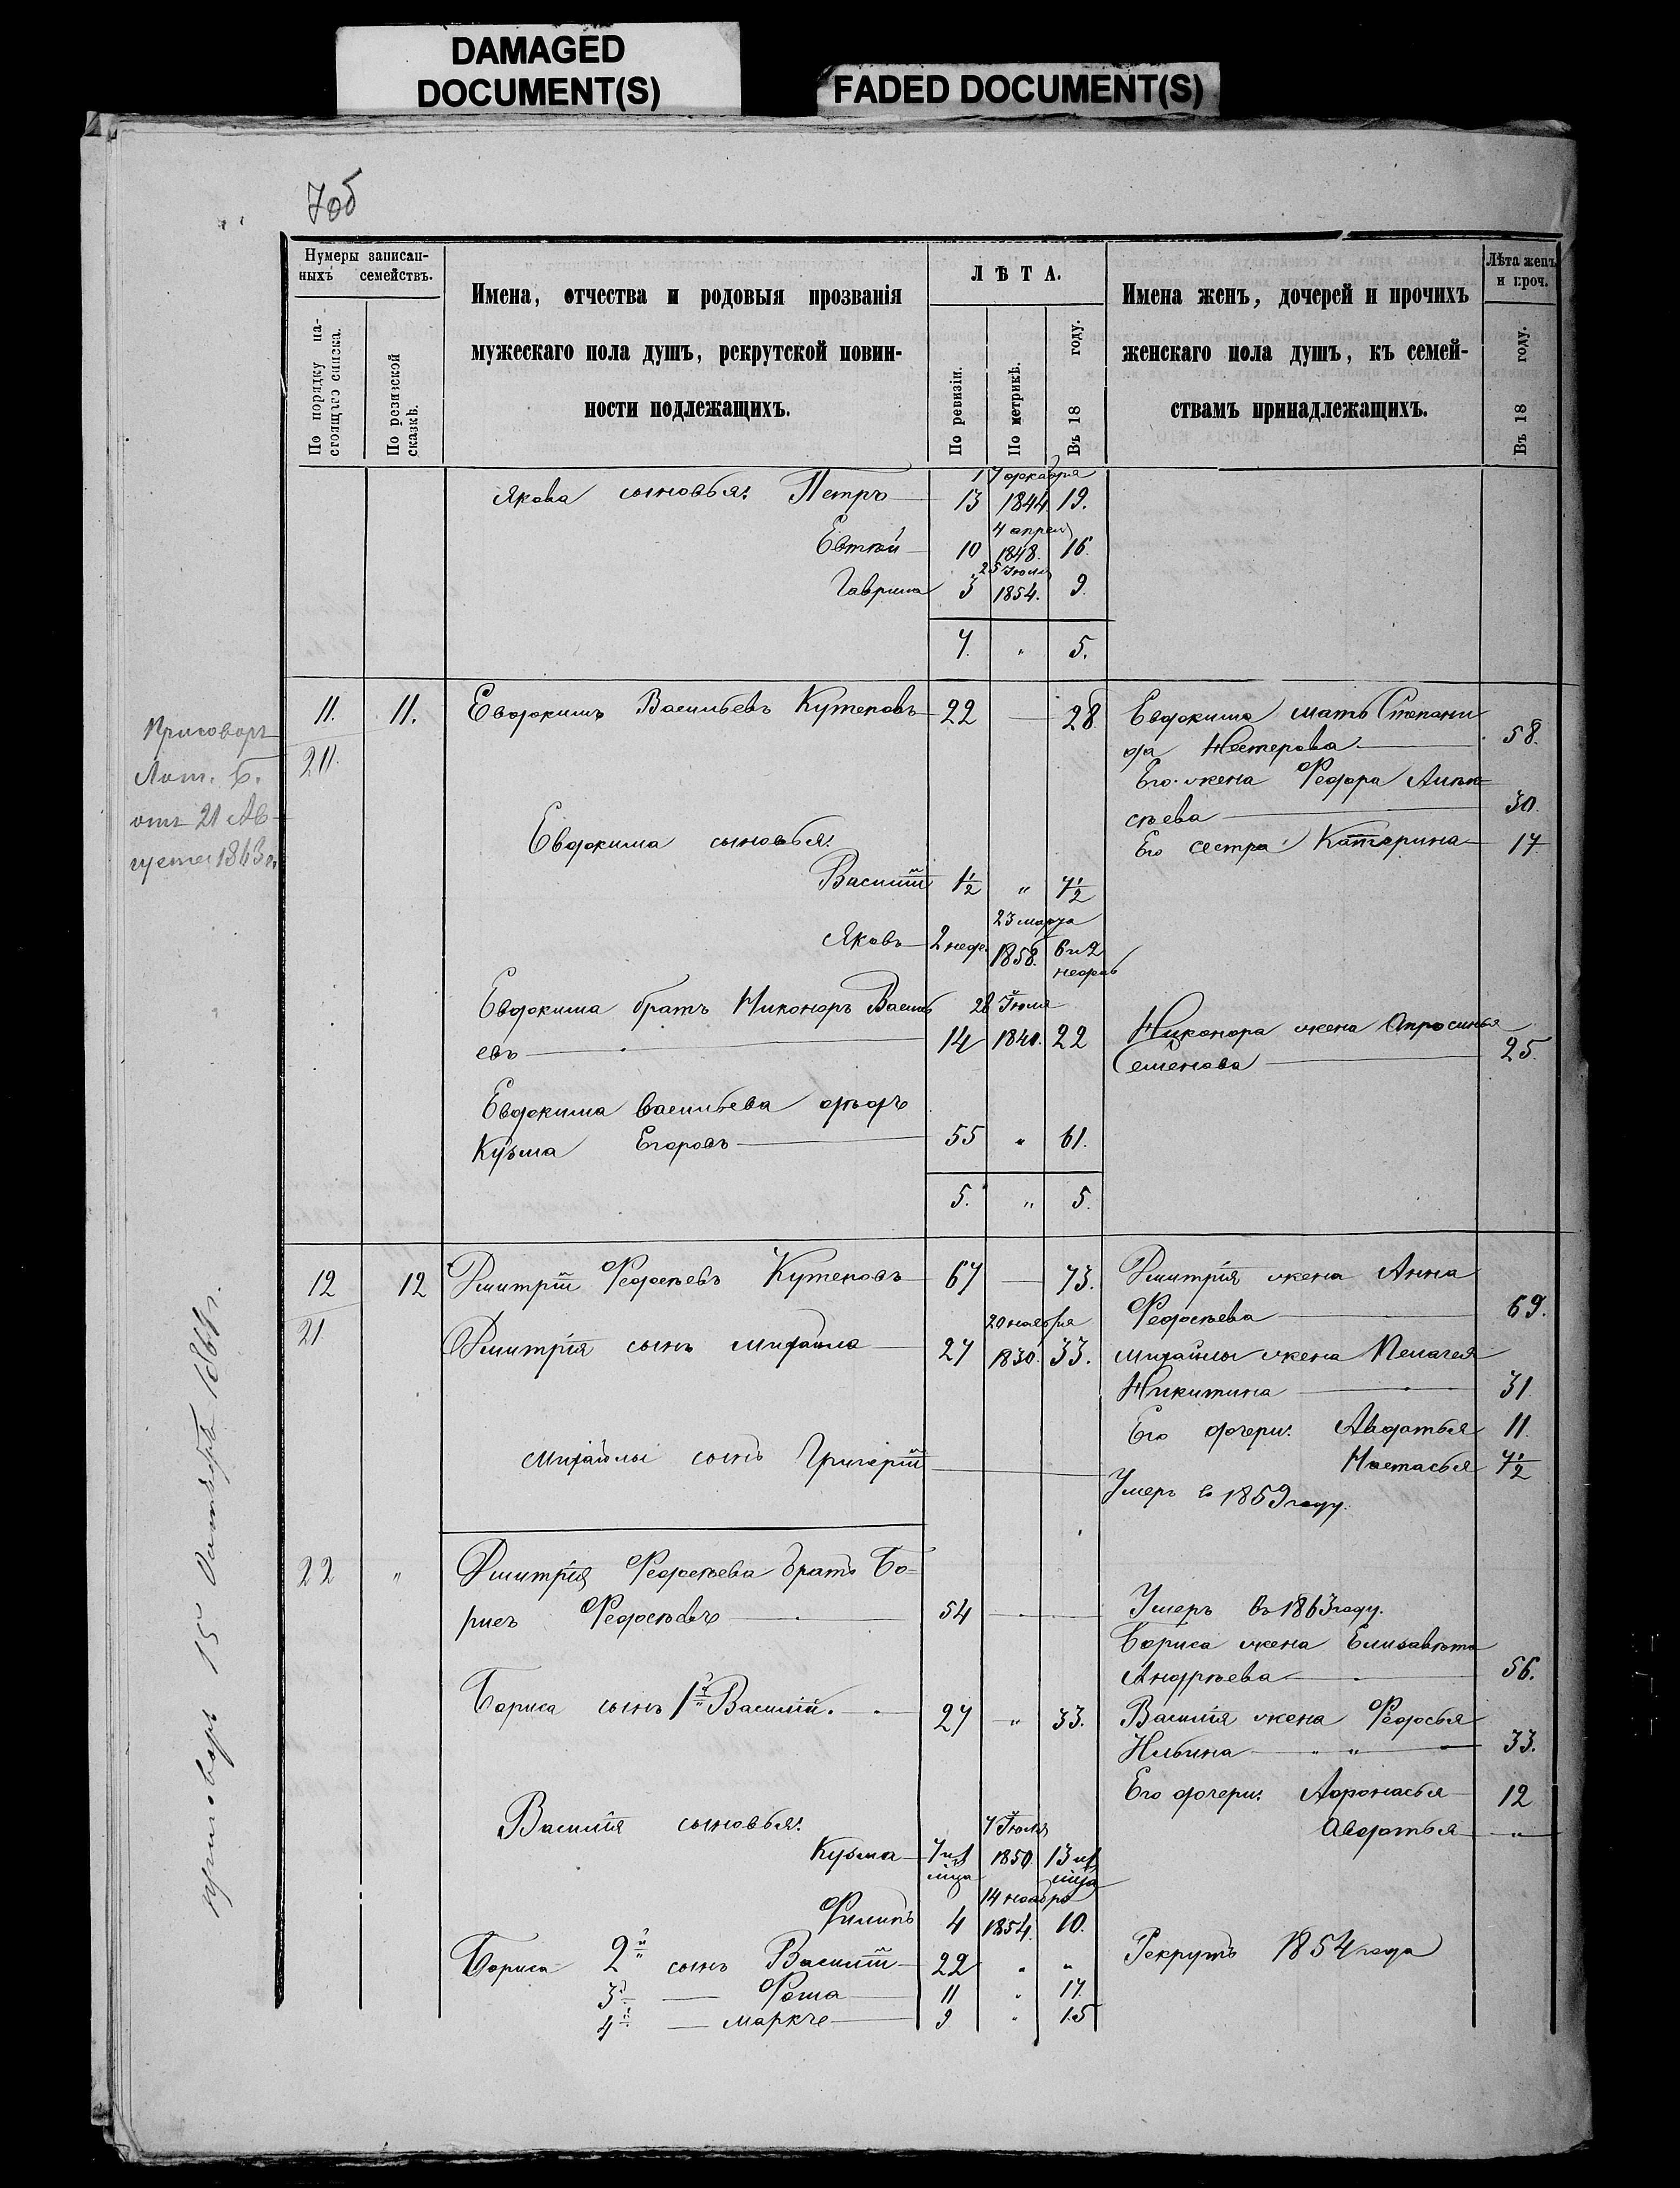 DAMAGED
DOCUMENT(S)
FADED DOCUMENT(S)
7об
Нумеры записан-
ныхъ семействъ.
По порядку на-
стоящаго списка.
По ревизской
сказкѣ.
Имена, отчества и родовыя прозванія
мужескаго пола душъ, рекрутской повин-
ности подлежащихъ.
ЛѢТА.
По ревизіи.
По метрикѣ.
Въ 18 году.
Имена женъ, дочерей и прочихъ
женскаго пола душъ, къ семей-
ствамъ принадлежащихъ.
Лѣта женъ
и проч.
Въ 18 году.
17 декабря
Якова сыновья: Петръ 13 1844 19.
4 апрел
Евтѣй 10 1848. 16.
25 Іюля
Гаврила 3 1854. 9.
7. " 5.
Приговоръ
Лит. Б.
отъ 21 Ав-
густа 1863 г.
11. 11. Евдокимъ Васильевъ Кутеповъ 22 — 28
211.
Евдокима мать Степани
да Нестерова 58.
Его жена Федора Алек-
сѣева 30.
Его сестра Катерина 17
Евдокима сыновья:
Василій 1½ " 7½
23 марта
Яковъ 2 недѣ. 1858. 6 и 2
недѣль
Евдокима братъ Никоноръ Василь 28 Іюля
евъ 14 1840. 22
Никонора жена Апросинья
Семенова 25.
Евдокима Васильева дядя
Кузьма Егоровъ 55 " 61.
5. " 5.
12 12 Дмитрій Федосѣевъ Кутеповъ 67 — 73.
21
Дмитрія жена Анна
Федосѣева 69.
20 ноября
Дмитрія сынъ Михайла 27 1830. 33.
Михайлы жена Пелагея
Никитина 31.
Его дочери: Авдотья 11.
Настасья 7½
Михайлы сынъ Григорій
Умеръ в 1859 году.
22 " Дмитрія Федосѣева братъ Бо-
рисъ Федосѣевъ 54
Умеръ въ 1863 году.
Бориса жена Елизавѣта
Андрѣева 56.
Бориса сынъ 1й Василій. 27 " 33.
Василія жена Федосья
Ильина 33.
Его дочери: Афонасья 12
Авдотья "
Василія сыновья:
7 Іюля
Кузьма 7 1850 13
14 ноября
Филипъ 4 1854. 10.
Бориса 2й сынъ Василій 22 " "
Рекрутъ 1854 года
3й — Фома 11 " 17.
4й — Марке 9 " 15
Приговоръ 15 Октября 1864 г.